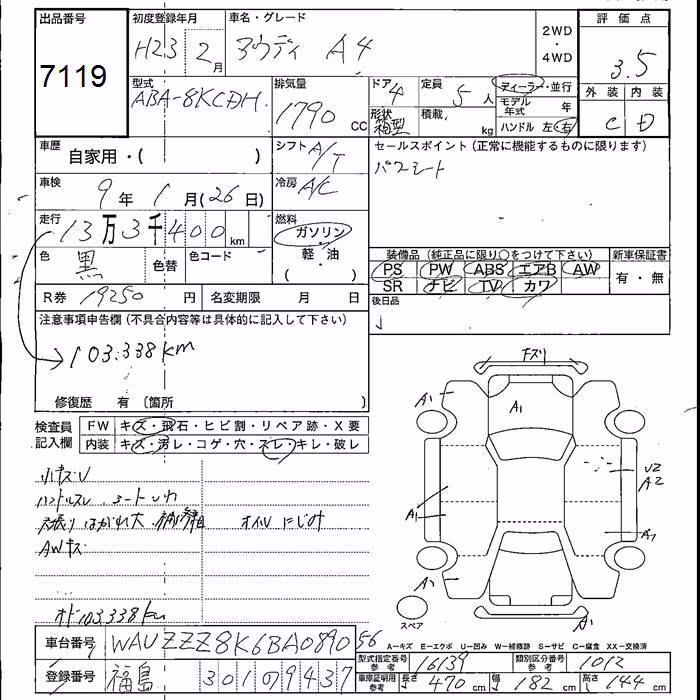 出品番号 初度登録年月 車名・グレード 評価点
7119 H23 2月 アウディ A4 2WD・4WD 3.5
型式 排気量 ドア 4 定員 5人 ディーラー・並行 外装 内装
ABA-8KCDH 1790cc 形状 箱型 積載 kg モデル年式 年 C D
ハンドル 左・右
車歴 自家用・( ) シフト A/T セールスポイント(正常に機能するものに限ります)
車検 9年 1月(26日) 冷房 A/C パワーシート
走行 13万3千400km 燃料 ガソリン・軽油
色 黒 色替 色コード ( )
装備品(純正品に限り○をつけて下さい) 新車保証書
PS PW ABS エアB AW 有・無
SR ナビ TV カワ
R券 19250円 名変期限 月 日 後日品
注意事項申告欄(不具合内容等は具体的に記入して下さい)
103.338km
修復歴 有(箇所 )
検査員記入欄 FW キズ・飛石・ヒビ割・リペア跡・X要
内装 キズ・汚レ・コゲ・穴・スレ・キレ・破レ
小キズU
ハンドルスレ シートシワ
天張りはがれ大 オイルにじみ
AWキズ
オド103.338km
下スリ
A1
A1
U2
A2
A1
A1
A1
A1
スペア
A-キズ E-エクボ U-凹み W-補修跡 S-サビ C-腐食 XX-交換済
車台番号 WAUZZZ8K6BA089056
型式指定番号 参考 16139 類別区分番号 参考 1012
登録番号 福島 301 の 9437
車庫証明用 参考 長さ 470cm 幅 182cm 高さ 144cm